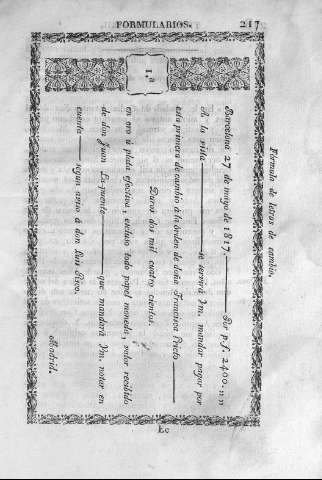 FORMULARIOS. 217
Fórmula de letras de cambio.
1.ª
Barcelona 27 de mayo de 1817. Por p.f. 2400. n n
A la vista se servirá Vm. mandar pagar por
esta primera de cambio á la órden de doña Francisca Prieto
Duros dos mil cuatro cientos.
en oro ó plata efectiva, escluso todo papel moneda, valor recibido
de don Juan La-puente que mandará Vm. notar en
cuenta segun aviso á don Luis Rico.
Madrid.
Ee